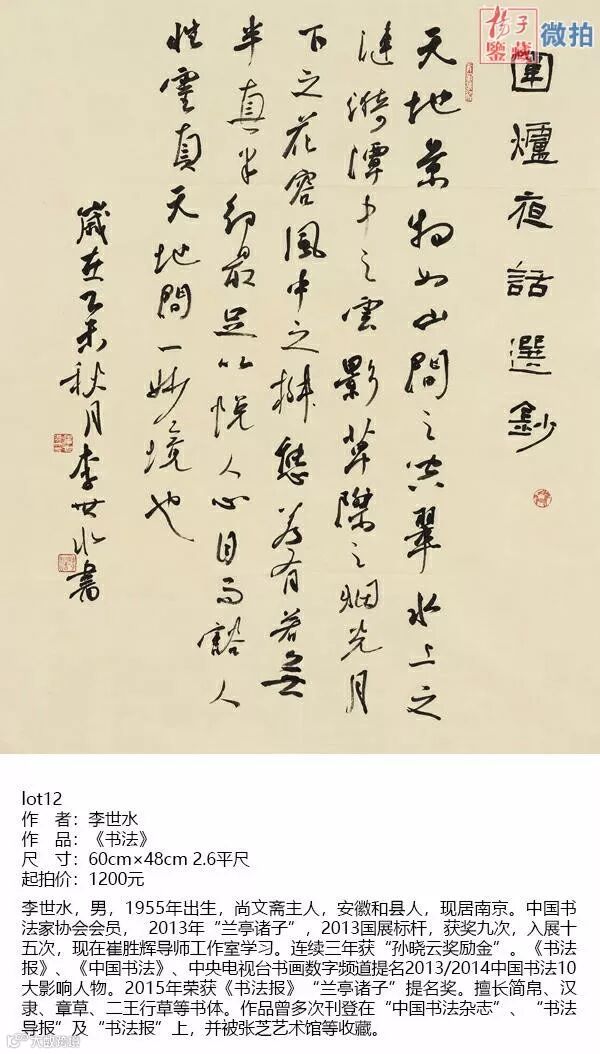 揚子
鑒藏
微拍
圍爐夜話選鈔
天地景物如山間之空翠水上之
漣漪潭中之雲影草際之烟光月
下之花容風中之柳態若有若無
半真半幻最足以悅人心目而豁人
性靈真天地間一妙境也
歲在乙未秋月李世水書
lot12
作 者：李世水
作 品：《书法》
尺 寸：60cm×48cm 2.6平尺
起拍价：1200元
李世水，男，1955年出生，尚文斋主人，安徽和县人，现居南京。中国书
法家协会会员， 2013年“兰亭诸子”，2013国展标杆，获奖九次，入展
十五次，现在崔胜辉导师工作室学习。连续三年获“孙晓云奖励金”。《书法
报》、《中国书法》、中央电视台书画数字频道提名2013/2014中国书法10
大影响人物。2015年荣获《书法报》“兰亭诸子”提名奖。擅长简帛、汉
隶、章草、二王行草等书体。作品曾多次刊登在“中国书法杂志”、“书法
导报”及“书法报”上，并被张芝艺术馆等收藏。